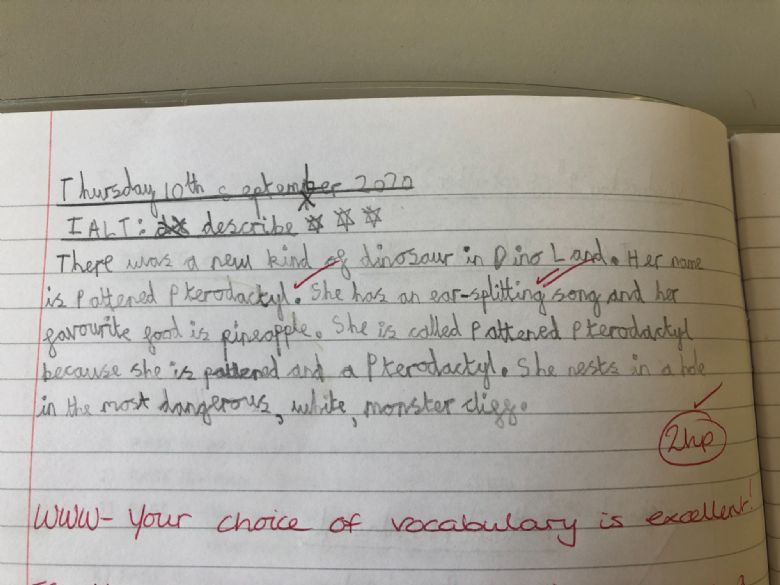 Thursday 10th september 2020
IALT: describe ☆ ☆ ☆
There was a new kind of dinosaur in Dino Land. Her name
is Pattened Pterodactyl. She has an ear-splitting song and her
favourite food is pineapple. She is called Pattened Pterodactyl
because she is pattened and a Pterodactyl. She nests in a hole
in the most dangerous, white, monster cliff.
2hp
WWW- Your choice of vocabulary is excellent!